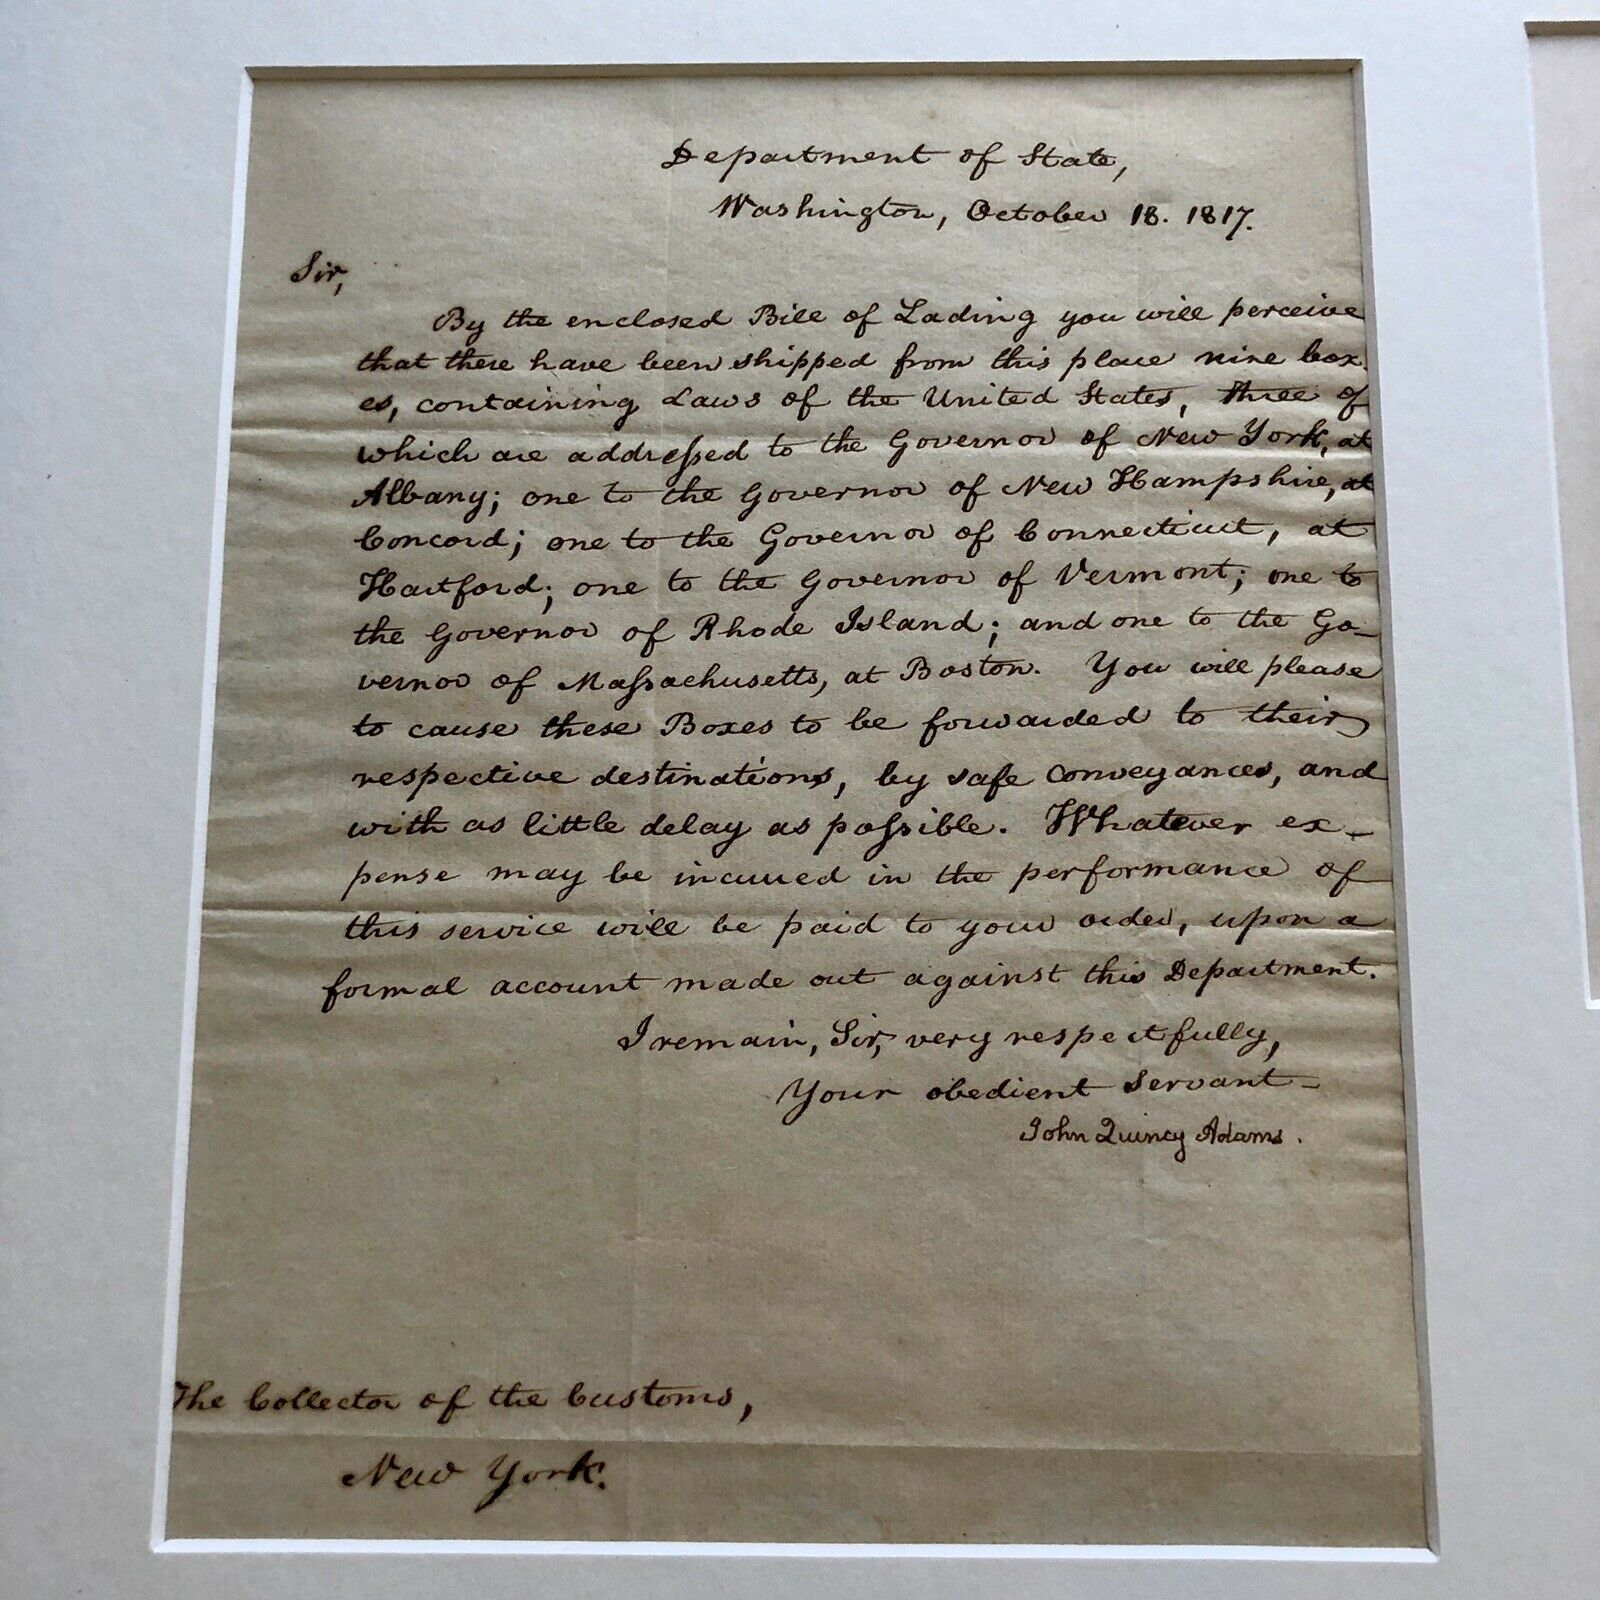 Department of State,
Washington, October 18. 1817.
Sir,
By the enclosed Bill of Lading you will perceive
that there have been shipped from this place nine box-
es, containing Laws of the United States, three of
which are addreſsed to the Governor of New York, at
Albany; one to the Governor of New Hampshire, at
Concord; one to the Governor of Connecticut, at
Hartford; one to the Governor of Vermont; one to
the Governor of Rhode Island; and one to the Go-
vernor of Maſsachusetts, at Boston. You will please
to cause these Boxes to be forwarded to their
respective destinations, by safe conveyances, and
with as little delay as poſsible. Whatever ex-
pense may be incurred in the performance of
this service will be paid to your order, upon a
formal account made out against this Department.
I remain, Sir, very respectfully,
Your obedient servant
John Quincy Adams.
The Collector of the Customs,
New York.